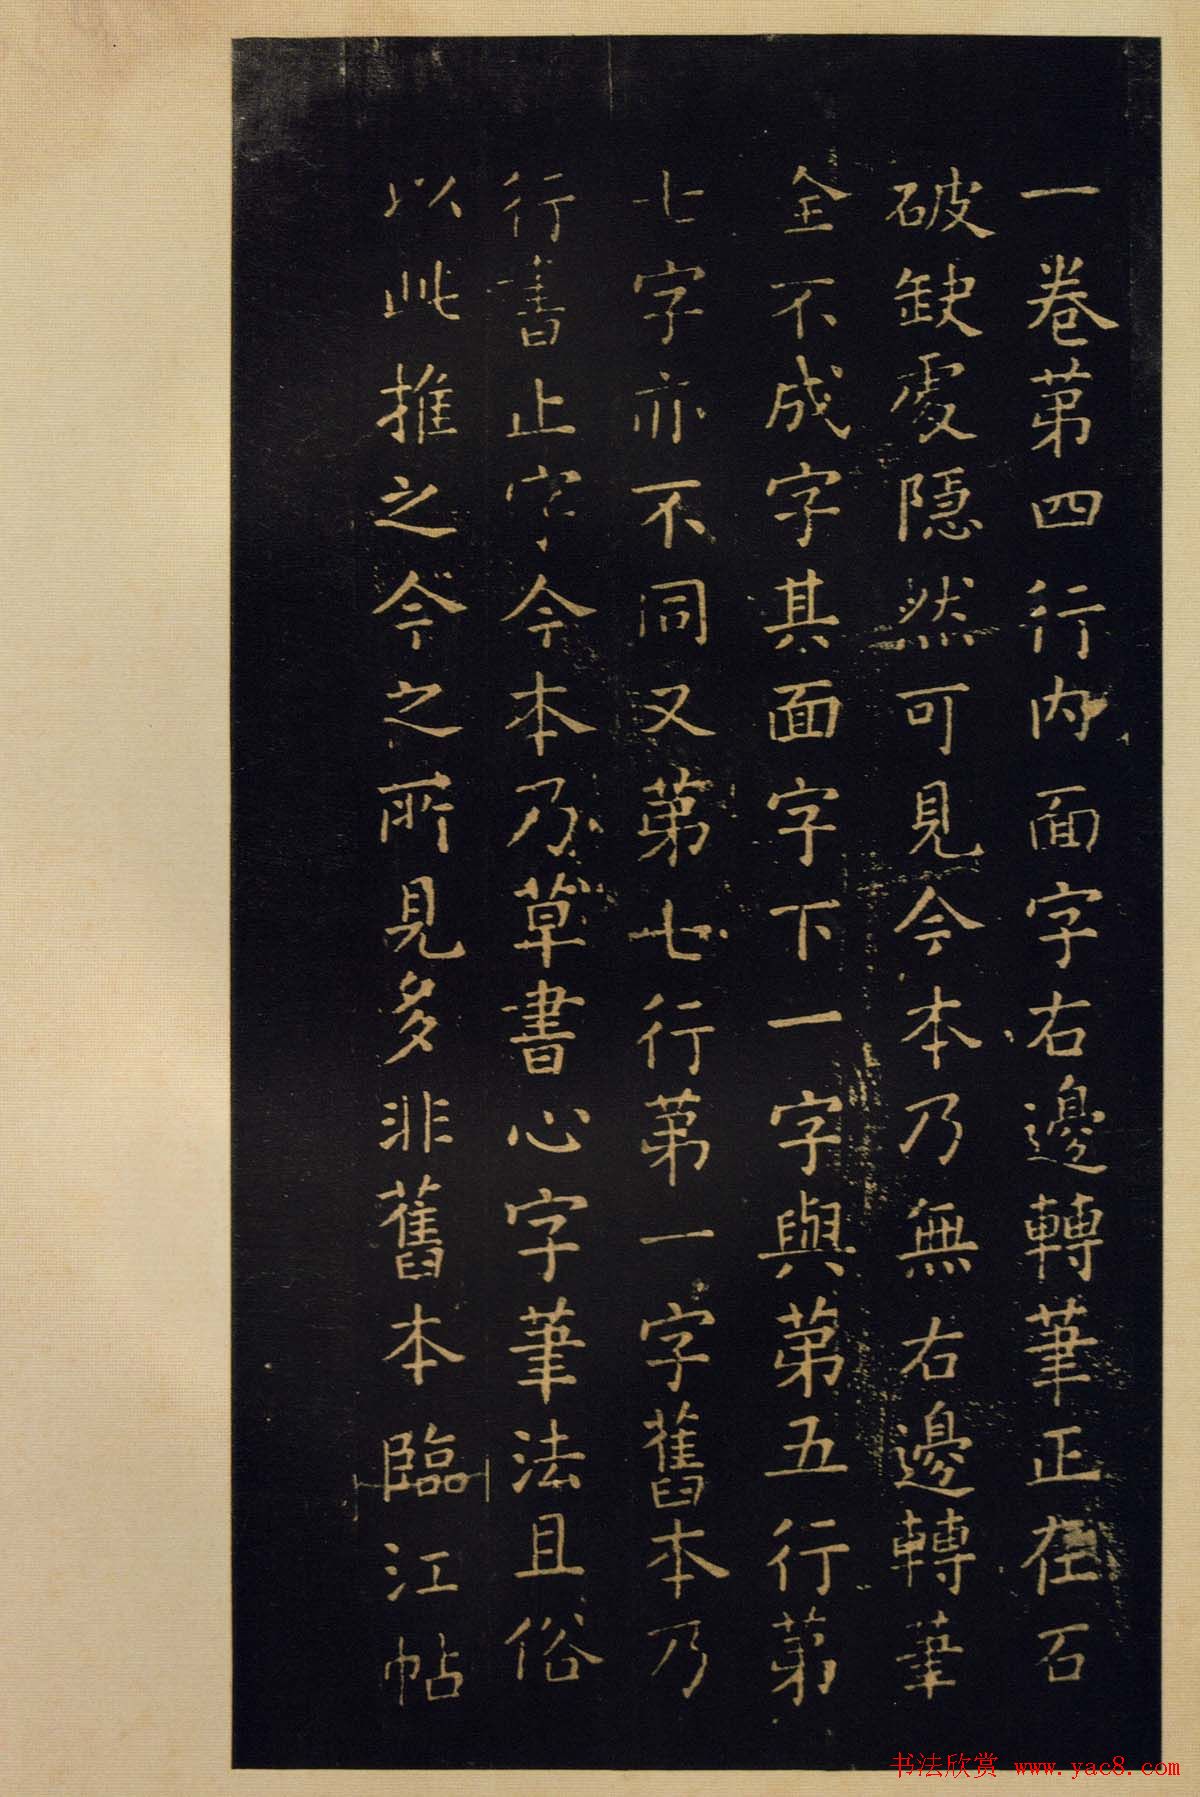 一卷第四行内面字右邊轉筆正在石
破缺處隱然可見今本乃無右邊轉筆
全不成字其面字下一字與第五行第
七字亦不同又第七行第一字舊本乃
行書止字今本乃草書心字筆法且俗
以此推之今之所見多非舊本臨江帖
书法欣赏 www.yac8.com